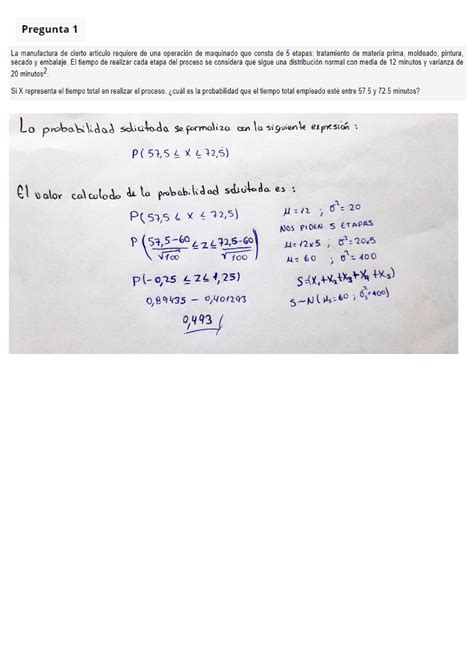 Pregunta 1
La manufactura de cierto artículo requiere de una operación de maquinado que consta de 5 etapas: tratamiento de materia prima, moldeado, pintura,
secado y embalaje. El tiempo de realizar cada etapa del proceso se considera que sigue una distribución normal con media de 12 minutos y varianza de
20 minutos².
Si X representa el tiempo total en realizar el proceso, ¿cuál es la probabilidad que el tiempo total empleado esté entre 57.5 y 72.5 minutos?
La probabilidad solicitada se formaliza con la siguiente expresión :
P(57,5 ≤ X ≤ 72,5)
El valor calculado de la probabilidad solicitada es :
P(57,5 ≤ X ≤ 72,5)
P(57,5-60/√100 ≤ z ≤ 72,5-60/√100)
P(-0,25 ≤ Z ≤ 1,25)
0,89435 - 0,401293
0,493
μ=12 ; σ²=20
NOS PIDEN 5 ETAPAS
μ=12x5 ; σ²=20x5
μ= 60 ; σ²=100
S=(X₁+X₂+X₃+X₄+X₅)
S~N(μₛ=60 ; σₛ²=100)